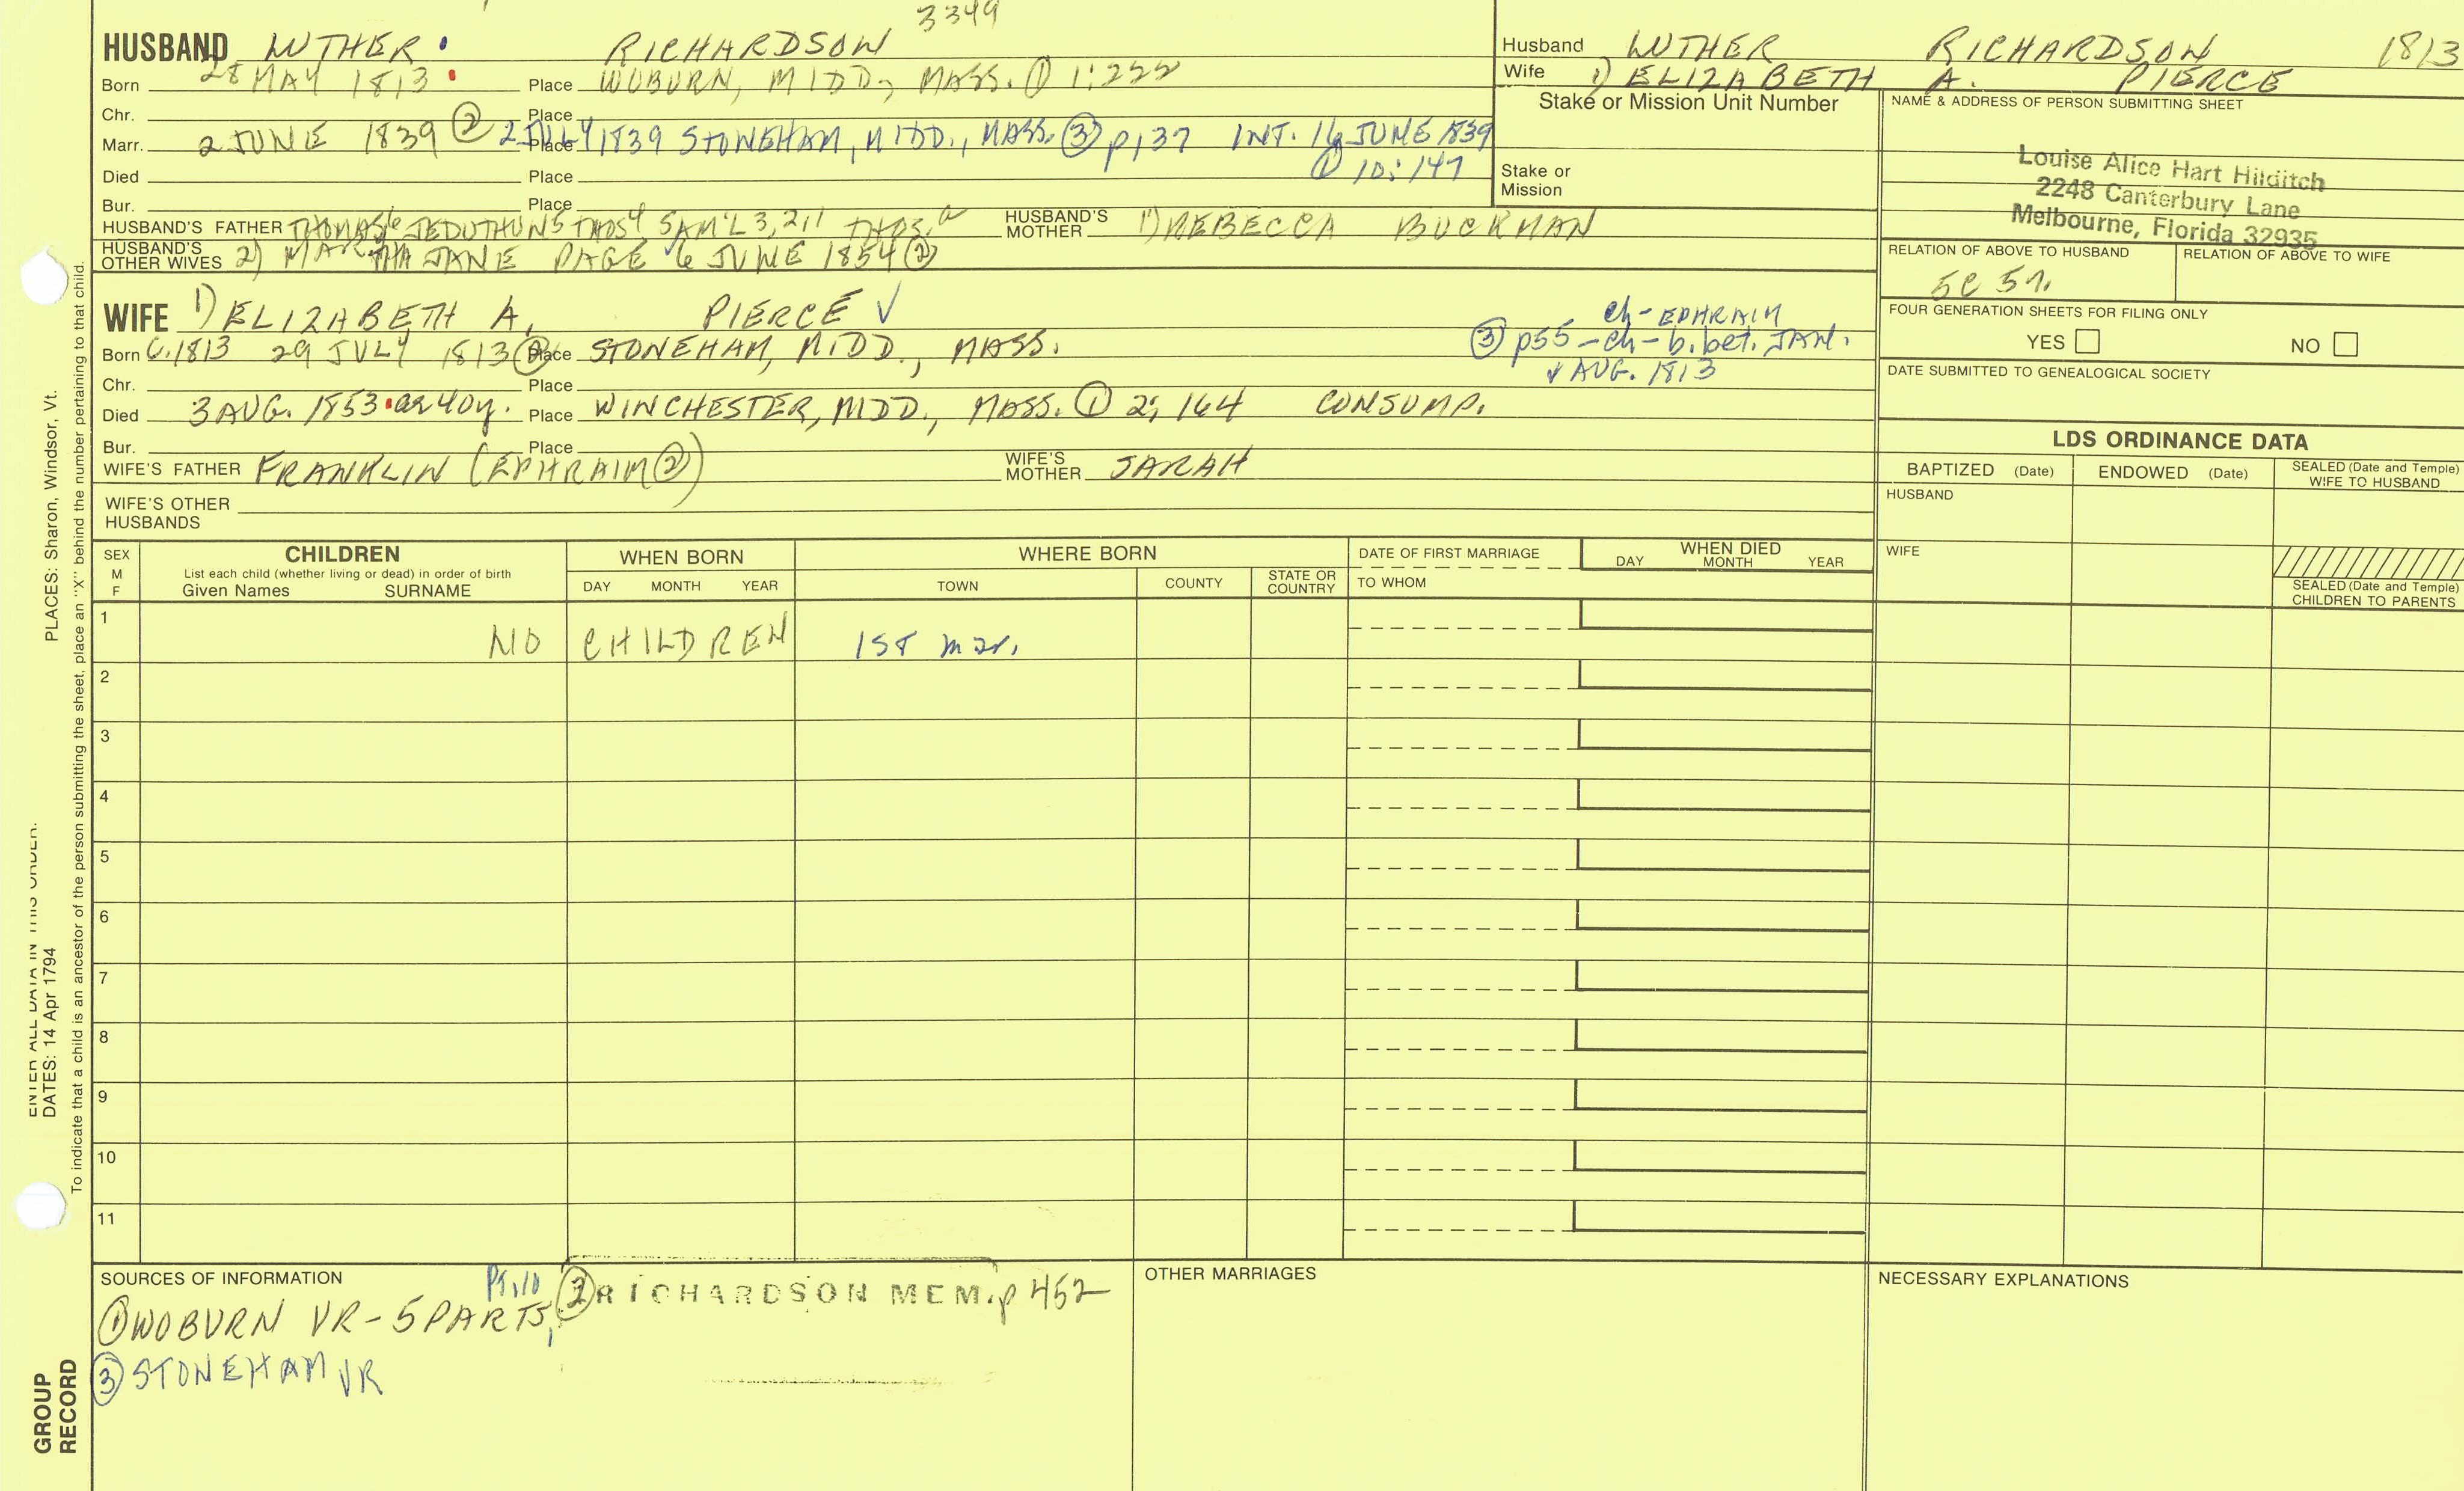 3349
HUSBAND LUTHER RICHARDSON
Born 28 MAY 1813 Place WOBURN, MIDD., MASS. ① 1:222
Chr. Place
Marr. 2 JUNE 1839 ② 2 JULY 1839 Place STONEHAM, MIDD., MASS. ③ p137 INT. 16 JUNE 1839
① 10:147
Died Place
Bur. Place
HUSBAND'S FATHER THOMAS6 JEDUTHUN5 THOS4 SAM'L 3,2,1 THOS.a HUSBAND'S MOTHER 1) REBECCA BUCKMAN
HUSBAND'S OTHER WIVES 2) MARTHA JANE PAGE 6 JUNE 1854 ②
Husband LUTHER RICHARDSON 1813
Wife 1) ELIZABETH A. PIERCE
Stake or Mission Unit Number
Stake or Mission
NAME & ADDRESS OF PERSON SUBMITTING SHEET
Louise Alice Hart Hilditch
2248 Canterbury Lane
Melbourne, Florida 32935
RELATION OF ABOVE TO HUSBAND RELATION OF ABOVE TO WIFE
5C 5r.
FOUR GENERATION SHEETS FOR FILING ONLY
YES NO
DATE SUBMITTED TO GENEALOGICAL SOCIETY
WIFE 1) ELIZABETH A. PIERCE ✓
Born C.1813 29 JULY 1813 ② Place STONEHAM, MIDD., MASS.
ch- EPHRAIM
③ p55 -ch- b. bet. JAN.
& AUG. 1813
Chr. Place
Died 3 AUG. 1853 ae 40y. Place WINCHESTER, MIDD., MASS. ① 2:164 CONSUMP.
Bur. Place
WIFE'S FATHER FRANKLIN (EPHRAIM ②) WIFE'S MOTHER SARAH
WIFE'S OTHER HUSBANDS
LDS ORDINANCE DATA
BAPTIZED (Date) ENDOWED (Date) SEALED (Date and Temple) WIFE TO HUSBAND
HUSBAND
WIFE
SEALED (Date and Temple) CHILDREN TO PARENTS
SEX M F
CHILDREN
List each child (whether living or dead) in order of birth
Given Names SURNAME
WHEN BORN
DAY MONTH YEAR
WHERE BORN
TOWN COUNTY STATE OR COUNTRY
DATE OF FIRST MARRIAGE
TO WHOM
WHEN DIED
DAY MONTH YEAR
1 NO CHILDREN 1ST mar.
2
3
4
5
6
7
8
9
10
11
SOURCES OF INFORMATION
① WOBURN VR - 5 PARTS, Pt. 10 ② RICHARDSON MEM. p 452
③ STONEHAM VR
OTHER MARRIAGES
NECESSARY EXPLANATIONS
ENTER ALL DATA IN THIS ORDER:
DATES: 14 Apr 1794
PLACES: Sharon, Windsor, Vt.
To indicate that a child is an ancestor of the person submitting the sheet, place an "X" behind the number pertaining to that child.
GROUP
RECORD